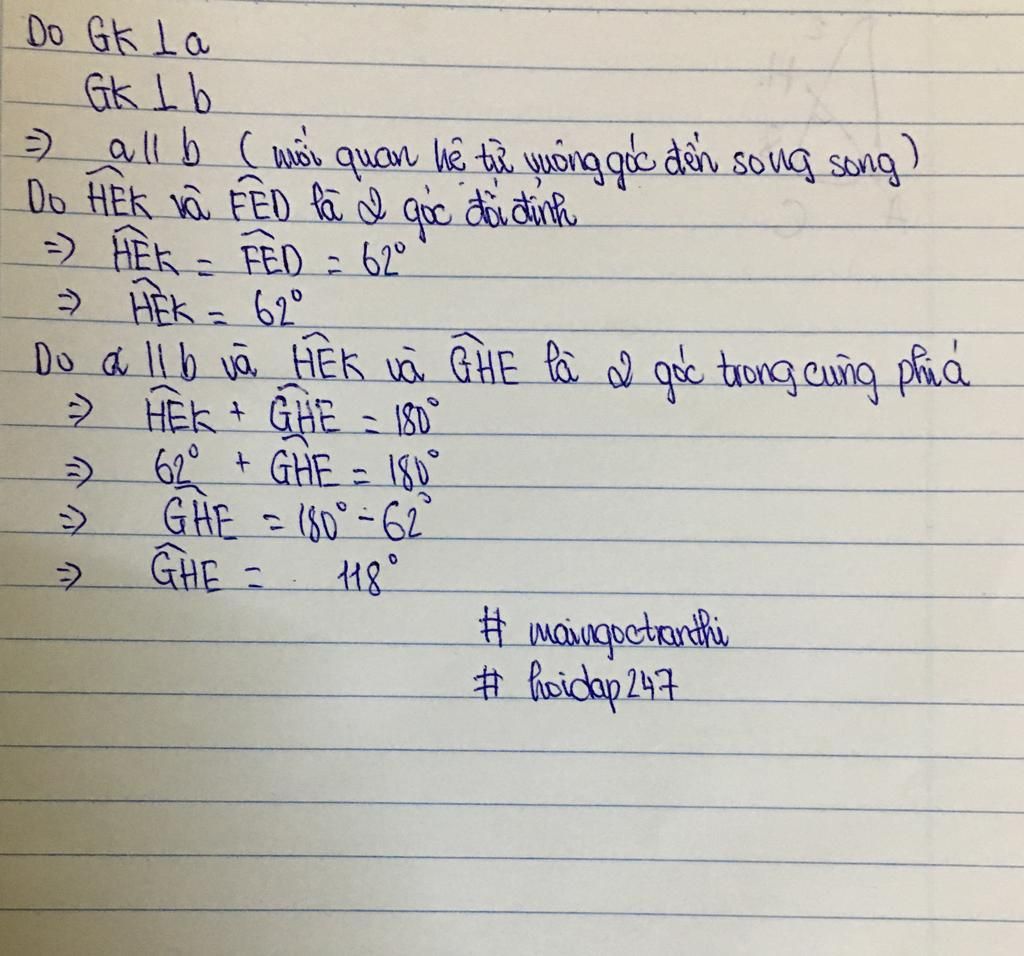 Do GK ⊥ a
GK ⊥ b
=> a || b (mối quan hệ từ vuông góc đến song song)
Do HÊK và FÊD là 2 góc đối đỉnh
=> HÊK = FÊD = 62°
=> HÊK = 62°
Do a || b và HÊK và GĤE là 2 góc trong cùng phía
=> HÊK + GĤE = 180°
=> 62° + GĤE = 180°
=> GĤE = 180° - 62°
=> GĤE = 118°
# maingoctranthi
# hoidap247